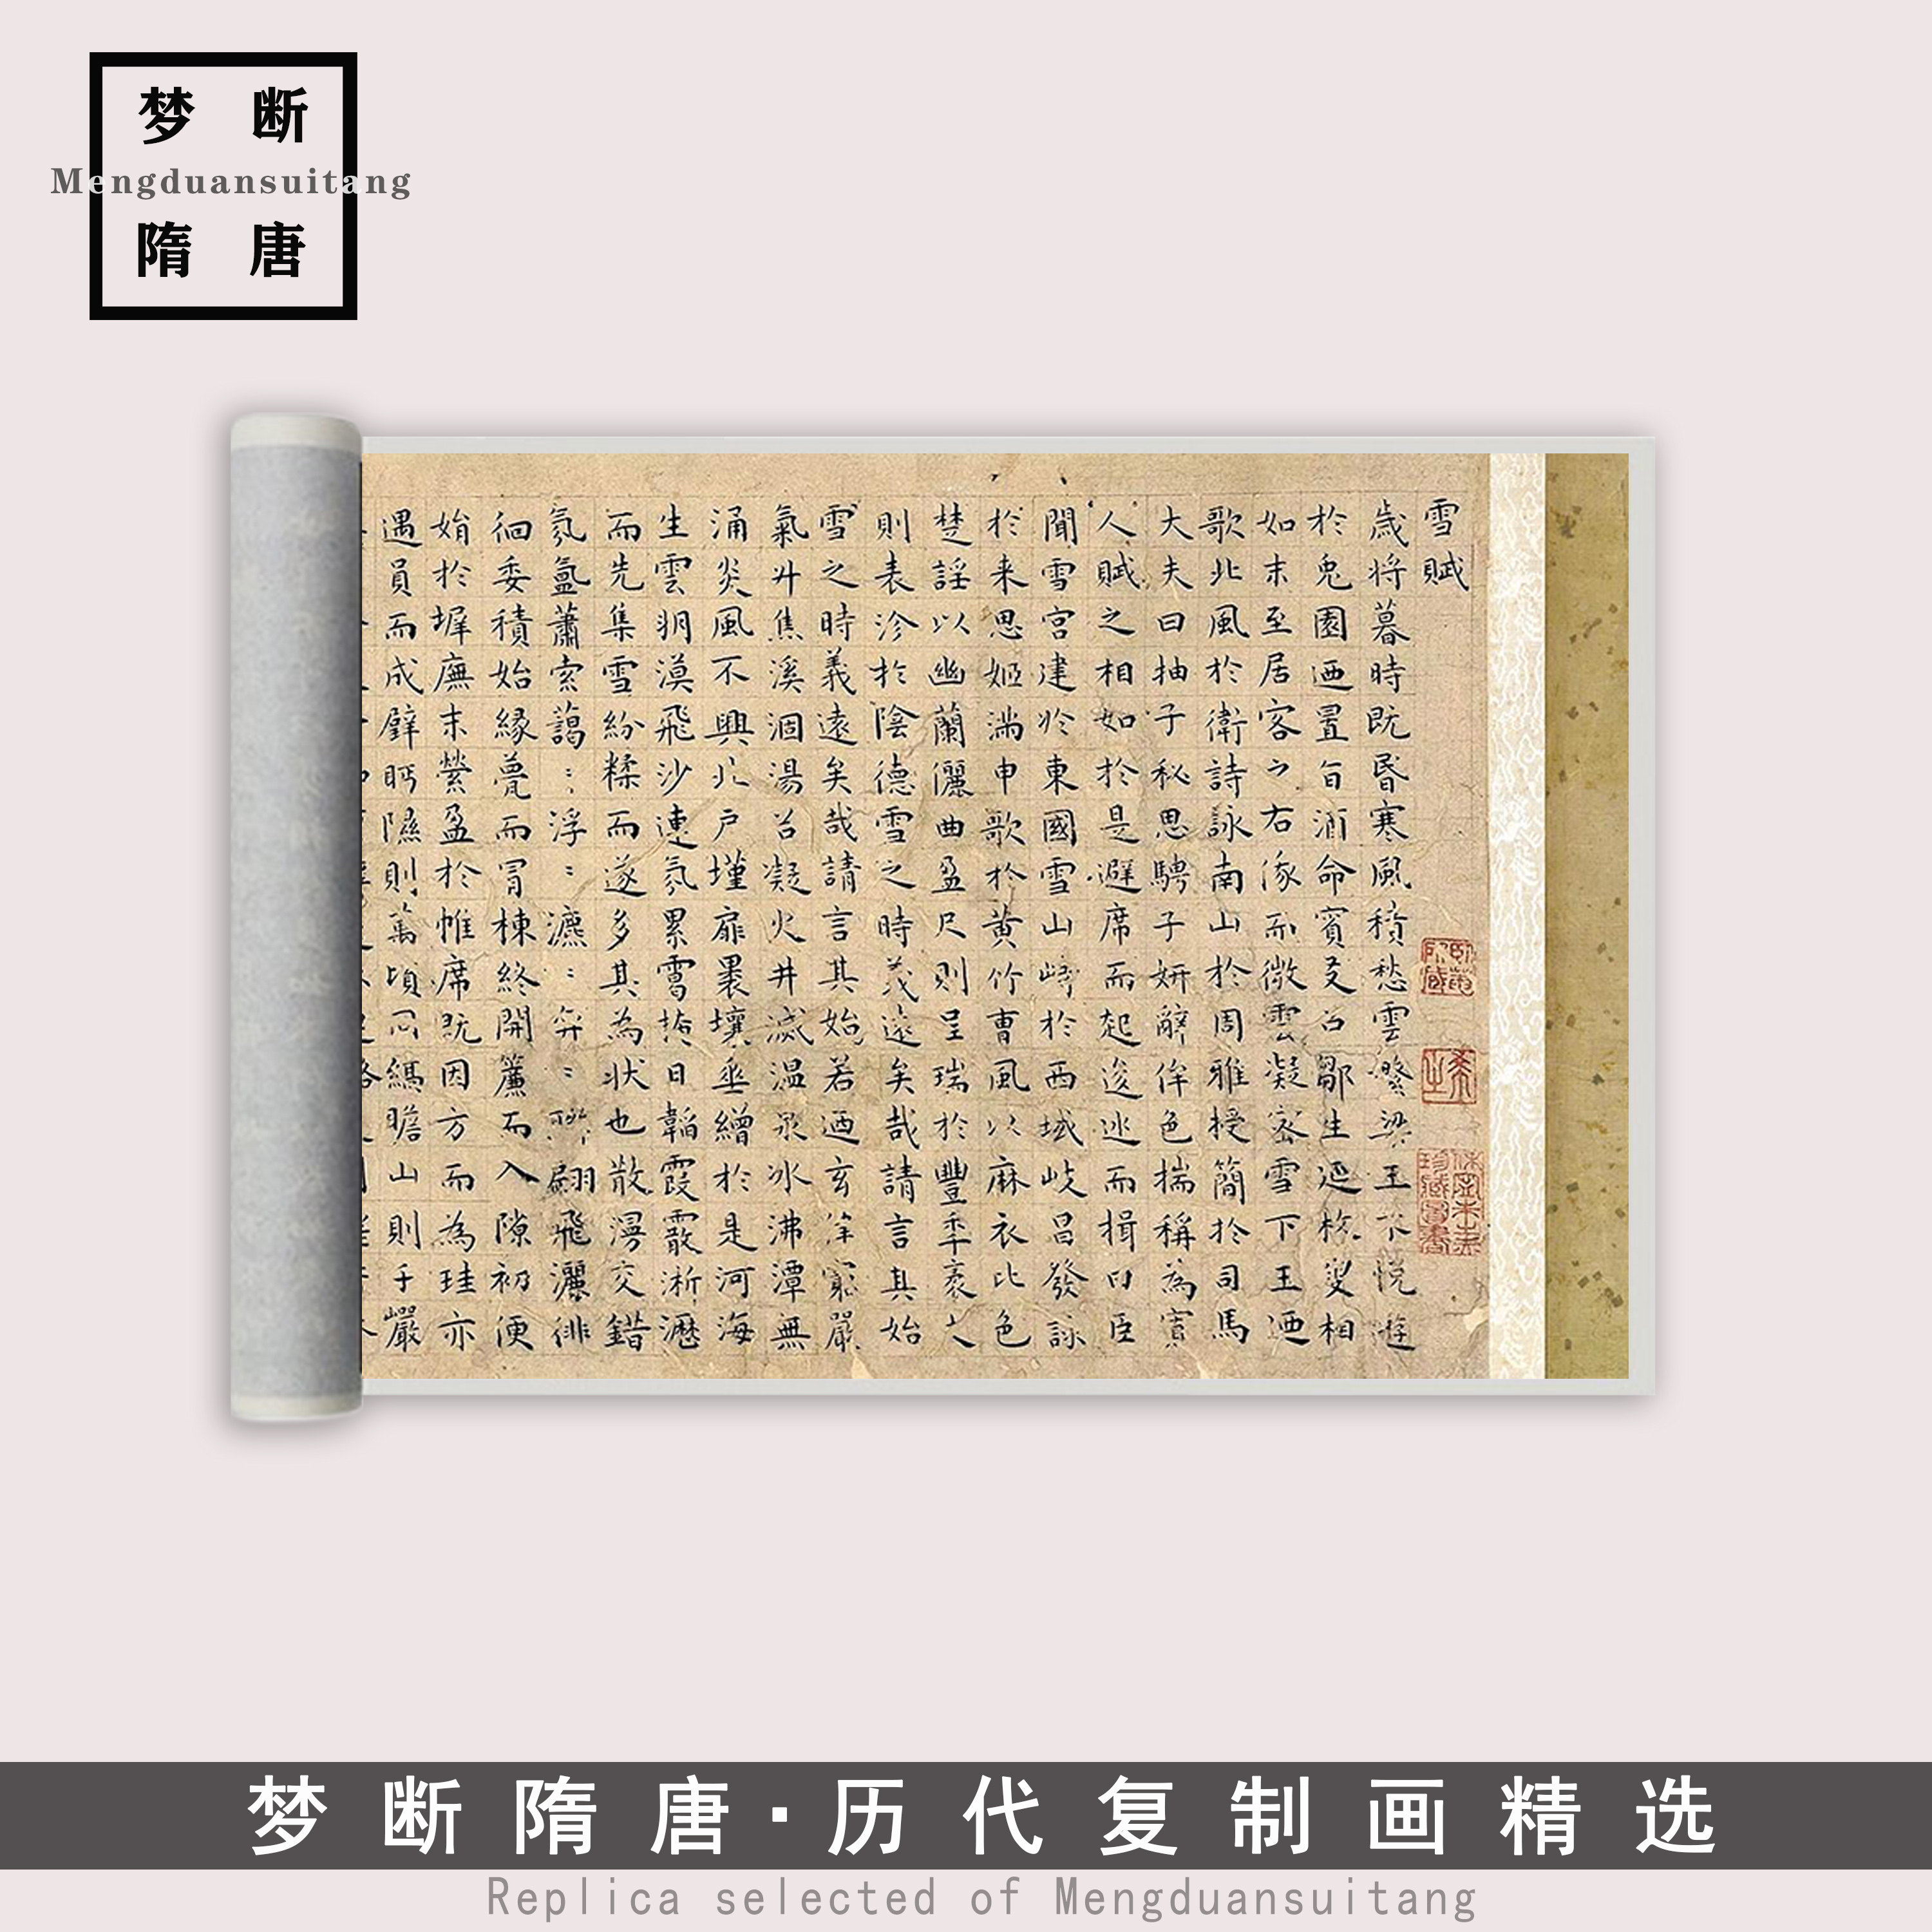 梦断
Mengduansuitang
隋唐
雪賦
歲將暮時既昏寒風積愁雲繁梁王不悅遊
於兔園迺置旨酒命賓友召鄒生延枚叟相
如末至居客之右俄而微雲凝密雪下王迺
歌北風於衛詩詠南山於周雅授簡於司馬
大夫曰抽子秘思騁子妍辭侔色揣稱為賓
人賦之相如於是避席而起逡逃而揖曰臣
聞雪宮建於東國雪山峙於西域岐昌發詠
於来思姬滿申歌於黄竹曹風以麻衣比色
楚謡以幽蘭儷曲盈尺則呈瑞於豐年袤丈
則表沴於陰德雪之時義遠矣哉請言其始
雪之時義遠矣哉請言其始若迺玄律窮嚴
氣升焦溪涸湯谷凝火井滅温泉冰沸潭無
涌炎風不興北戶墐扉裸壤垂繒於是河海
生雲朔漠飛沙連氛累霭掩日韜霞霰淅瀝
而先集雪紛糅而遂多其為状也散漫交錯
氛氳蕭索藹:浮:瀌:弈:聯翩飛灑徘
徊委積始緣甍而冒棟終開簾而入隙初便
娟於墀廡末縈盈於帷席既因方而為珪亦
遇員而成璧眄隰則萬頃同縞瞻山則千巖
梦断隋唐·历代复制画精选
Replica selected of Mengduansuitang